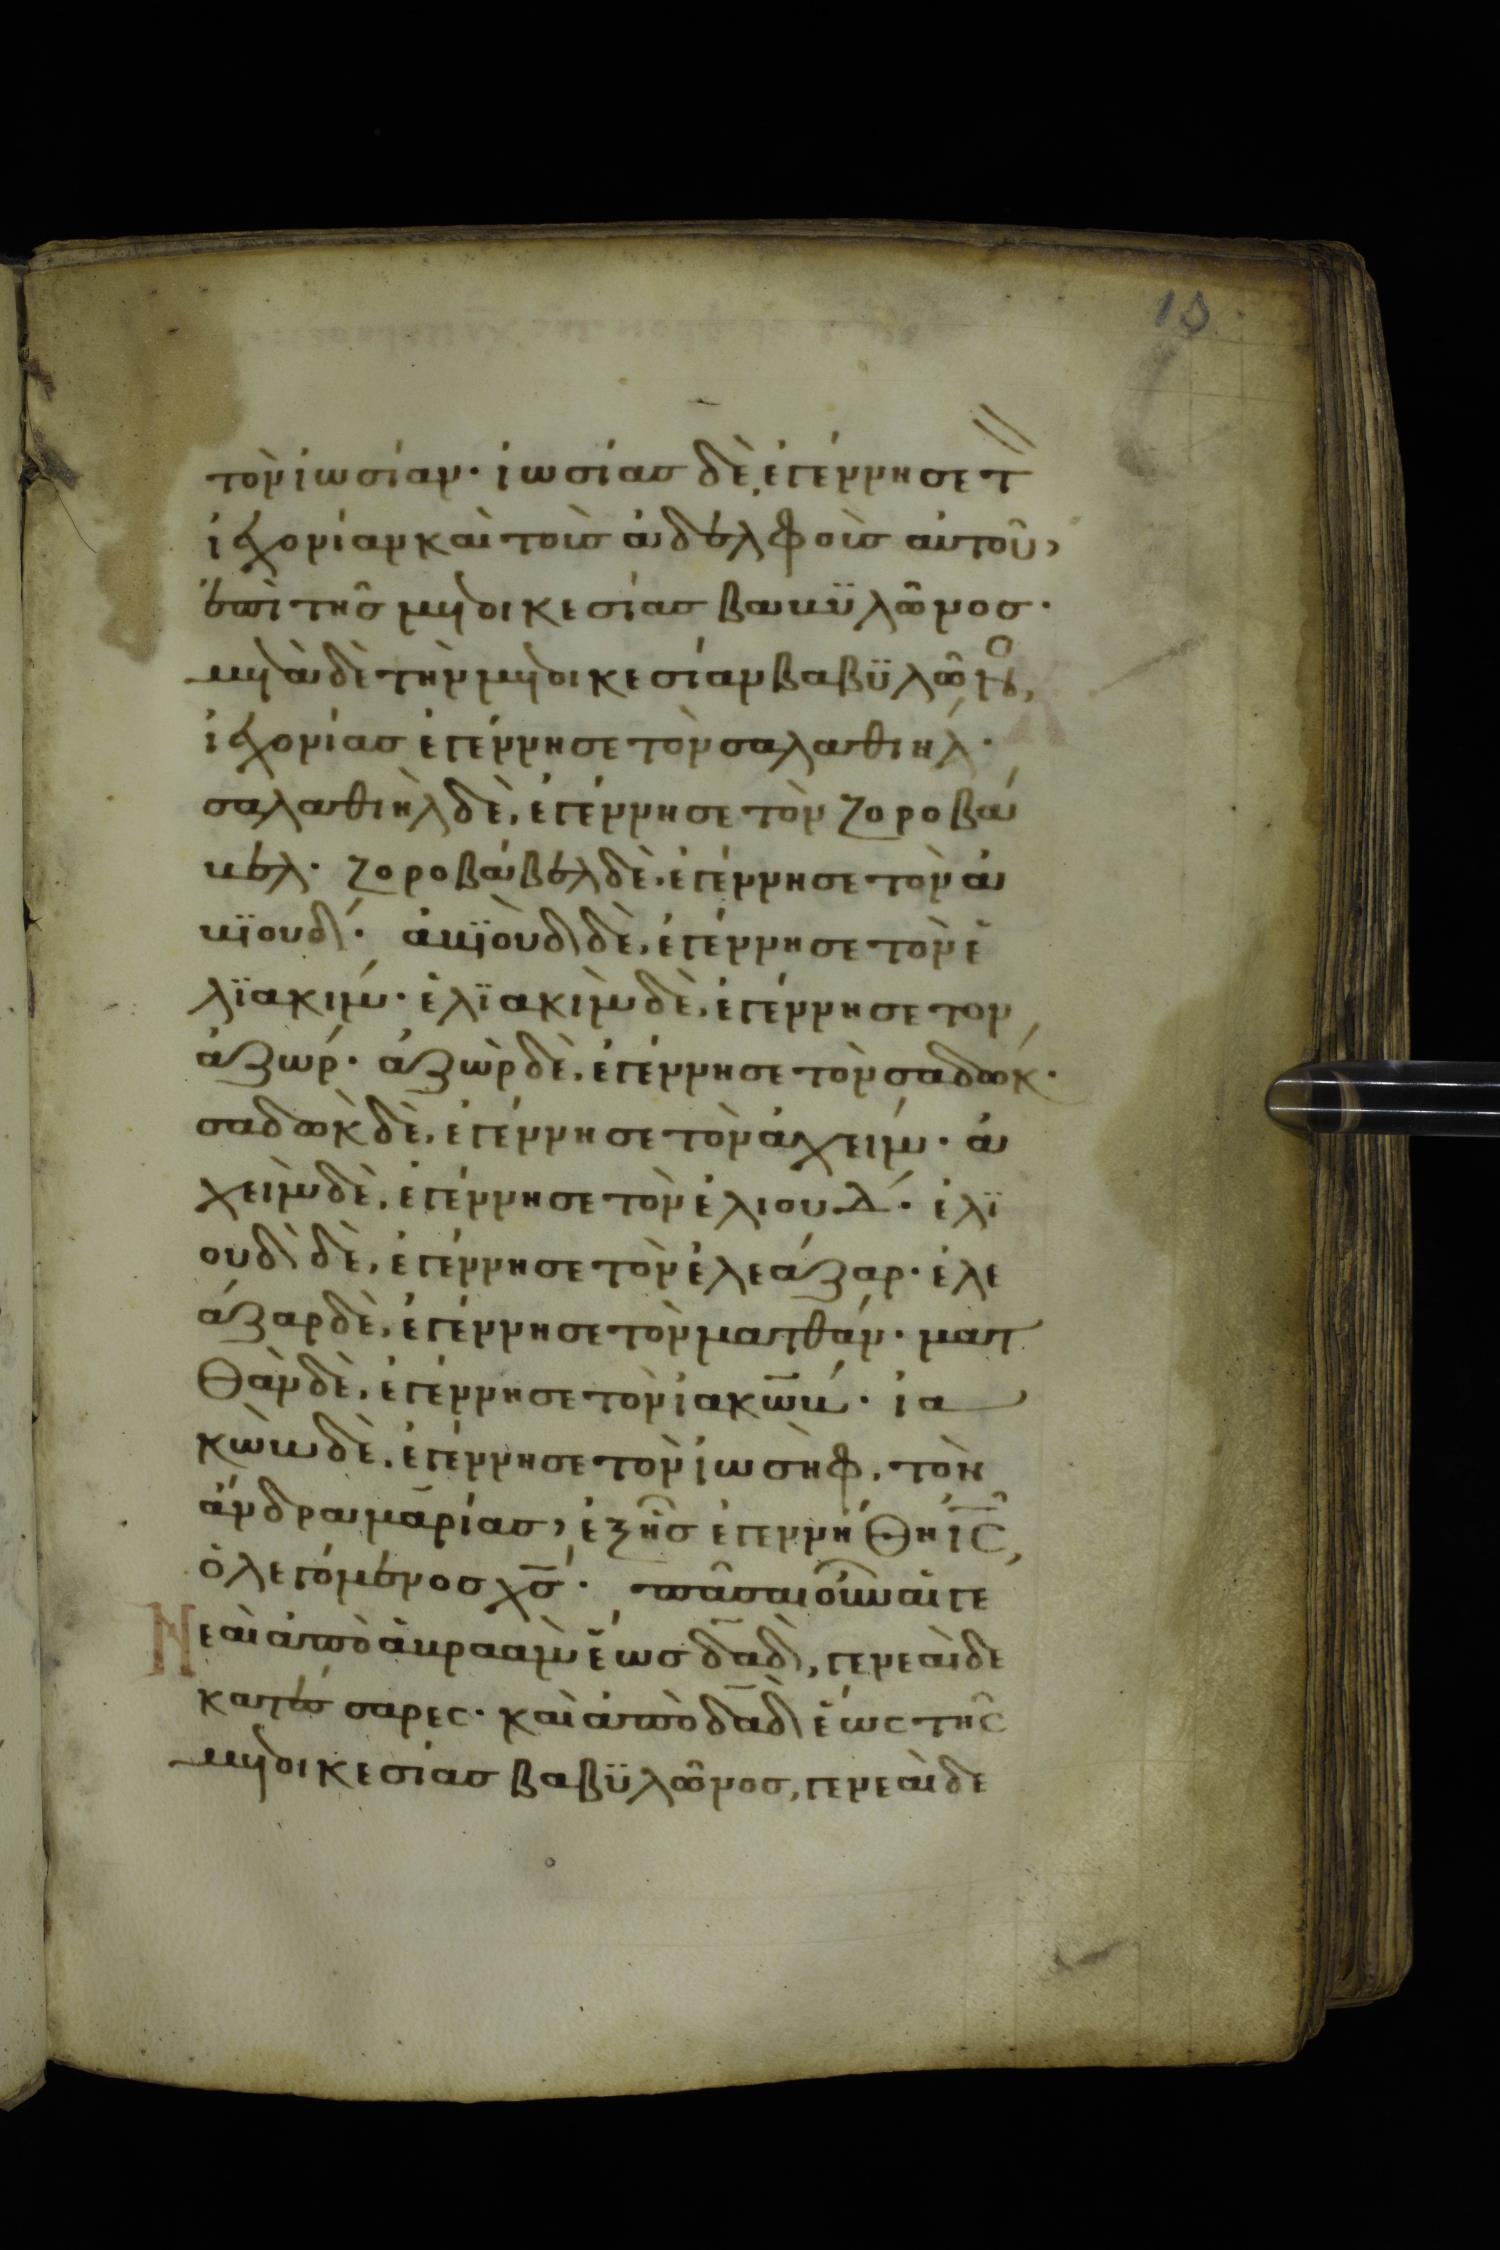 τὸν ἰωσίαν· ἰωσίασ δὲ, ἐγέννησε τ
ἰεχονίαν καὶ τοὺσ ἀδελφοὺσ αὐτοῦ,
ἐπὶ τῆσ μετοικεσίασ βαβϋλῶνοσ·
μετὰ δὲ τὴν μετοικεσίαν βαβϋλῶνοσ,
ἰεχονίασ ἐγέννησε τὸν σαλαθιήλ·
σαλαθιὴλ δὲ, ἐγέννησε τὸν ζοροβά
βελ· ζοροβάβελ δὲ, ἐγέννησε τὸν ἀ
βϊούδ· ἀβϊοὺδ δὲ, ἐγέννησε τὸν ἐ
λϊακίμ· ἐλϊακὶμ δὲ, ἐγέννησε τον
ἀζώρ· ἀζὼρ δὲ, ἐγέννησε τὸν σαδώκ·
σαδὼκ δὲ, ἐγέννησε τὸν ἀχείμ· ἀ
χεὶμ δὲ, ἐγέννησε τὸν ἐλιούδ· ἐλϊ
οὺδ δὲ, ἐγέννησε τὸν ἐλεάζαρ· ἐλε
άζαρ δὲ, ἐγέννησε τὸν ματθάν· ματ
θὰν δὲ, ἐγέννησε τὸν ἰακώβ· ἰα
κὼβ δὲ, ἐγέννησε τὸν ἰωσὴφ, τὸν
ἄνδρα μαρίασ, ἐξ ἧσ ἐγεννήθη ισ̅,
ὁ λεγόμενοσ χσ̅· πᾶσαι οὖν αἱ γε
νεαὶ ἀπὸ ἀβραὰμ ἕωσ δα̅δ, γενεαὶ δε
κατέσσαρες· καὶ ἀπὸ δα̅δ ἕως τῆς
μετοικεσίασ βαβϋλῶνοσ, γενεαὶ δε